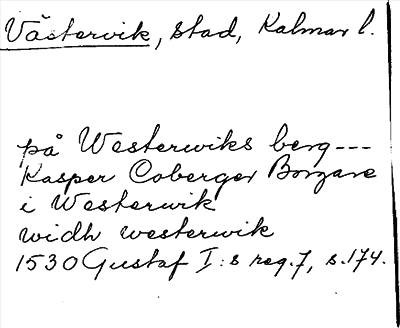 Västervik, stad, Kalmar l.
på Westerwiks berg---
Kasper Coberger Borgare
i Westerwik
widh westerwik
1530 Gustaf I:s reg. 7, s. 174.